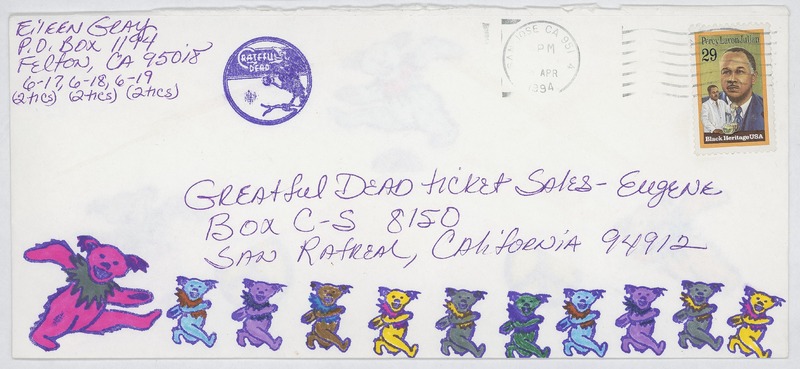 Eileen Gray
P.O. Box 1194
Felton, CA 95018
6-17, 6-18, 6-19
(2 tics) (2 tics) (2 tics)
GRATEFUL
DEAD
SAN JOSE CA 951 4
PM
APR
1994
Percy Lavon Julian
29
Black Heritage USA
Greatful Dead Ticket Sales - Eugene
Box C-S 8150
San Rafreal, California 94912